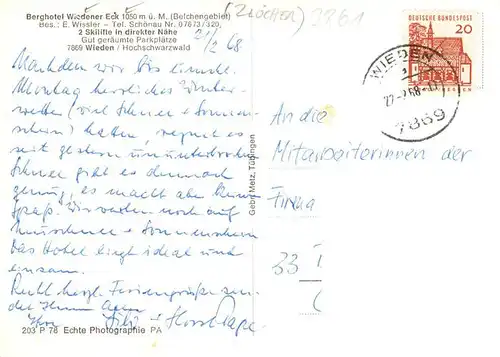 Berghotel Wiedener Eck 1050 m ü. M. (Belchengebiet)
Bes.: E. Wissler - Tel. Schönau Nr. 07673/320,
2 Skilifte in direkter Nähe
Gut geräumte Parkplätze
7869 Wieden / Hochschwarzwald
21/2 68
3861
DEUTSCHE BUNDESPOST
20
WIEDEN
22.-2.68
7869
Nachdem wir bis einschl.
Montag herrliches Winter-
wetter (viel Schnee + Sonnen-
schein) hatten, regnet es
seit gestern ununterbrochen
Schnee gibt es demnach
genug, es macht aber keinen
Spaß. Wir warten noch auf
Neuschnee + Sonnenschein
Das Hotel liegt ideal und
einsam.
Recht herzl. Feriengrüße sen-
det Ihnen allen
Ihre + Horst
An die
Mitarbeiterinnen der
Firma
33
Gebr. Metz, Tübingen
203 P 78 Echte Photographie PA